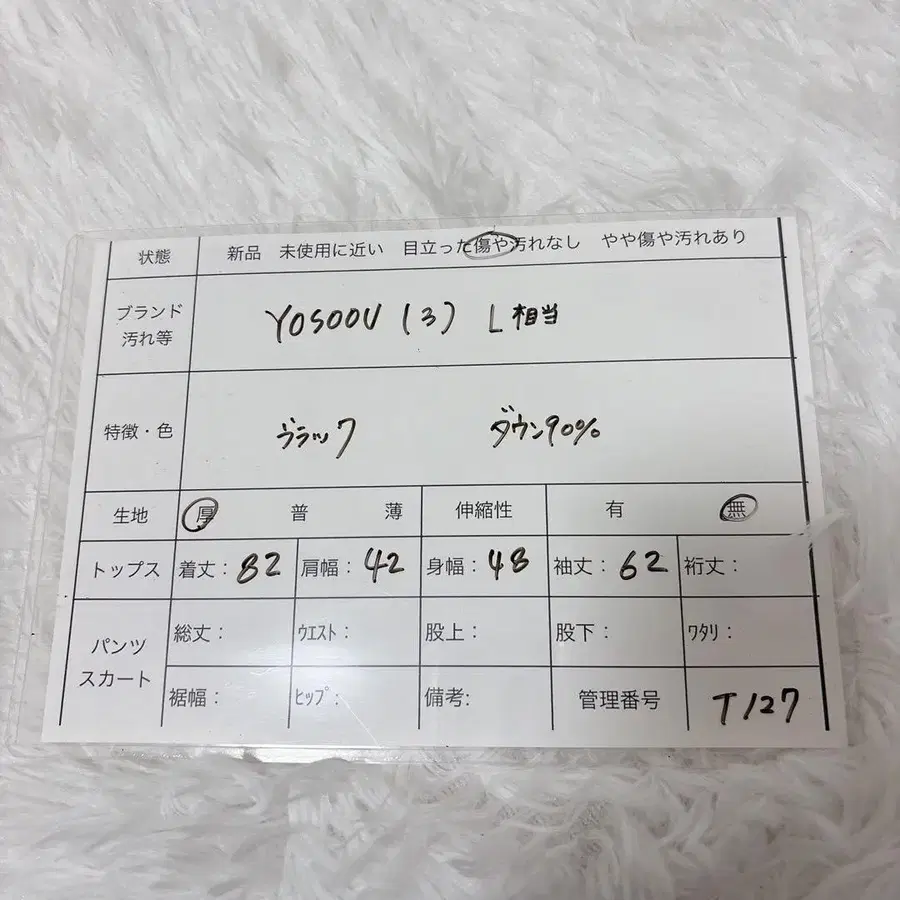 状態 新品 未使用に近い 目立った傷や汚れなし やや傷や汚れあり
ブランド
汚れ等
YOSOOU (3) L相当
特徴・色 ブラック ダウン90%
生地 厚 普 薄 伸縮性 有 無
トップス 着丈: 82 肩幅: 42 身幅: 48 袖丈: 62 裄丈:
パンツ
スカート
総丈: ウエスト: 股上: 股下: ワタリ:
裾幅: ヒップ: 備考: 管理番号 T127